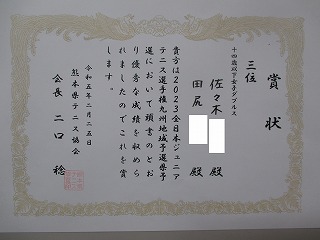 賞状
十四歳以下女子ダブルス
三位
佐々木 殿
田尻 殿
貴方は2023全日本ジュニア
テニス選手権九州地域予選県予
選において頭書のとお
り優秀な成績を収めら
れましたのでこれを賞
します。
令和五年二月二五日
熊本県テニス協会
会長 二口 稔